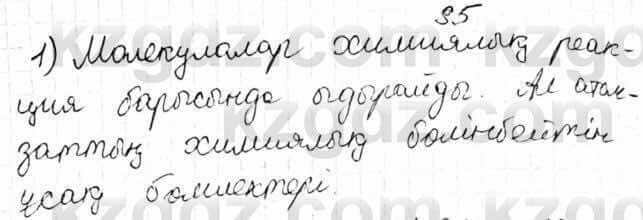 95
1) Молекулалар химиялық реак-
ция барысында ыдырайды. Ал атом-
заттың химиялық бөлінбейтін
ұсақ бөлшектері.